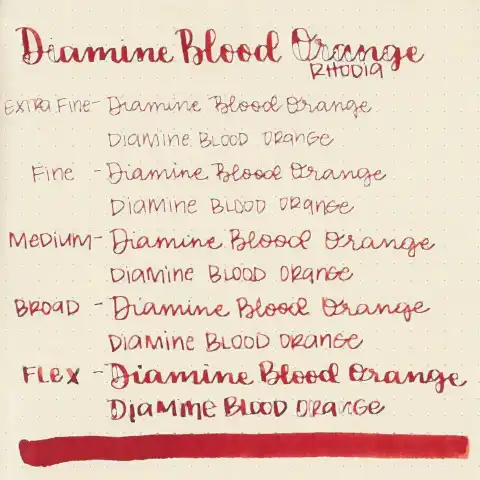 Diamine Blood Orange
RHODIA
EXTRA FINE - Diamine Blood Orange
DIAMINE BLOOD ORANGE
FINE - Diamine Blood Orange
DIAMINE BLOOD ORANGE
MEDIUM - Diamine Blood Orange
DIAMINE BLOOD ORANGE
BROAD - Diamine Blood Orange
DIAMINE BLOOD ORANGE
FLEX - Diamine Blood Orange
DIAMINE BLOOD ORANGE